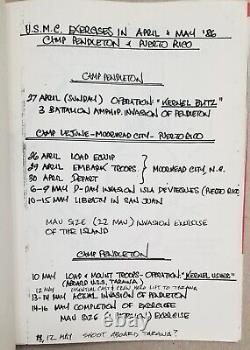 U.S.M.C. EXERCISES IN APRIL & MAY '86
CAMP PENDLETON & PUERTO RICO
CAMP PENDLETON
27 APRIL (SUNDAY) OPERATION "KERNEL BLITZ"
3 BATTALION AMPHIB. INVASION OF PENDLETON
CAMP LEJUNE - MOOREHEAD CITY - PUERTO RICO
26 APRIL LOAD EQUIP
29 APRIL EMBARK TROOPS. MOOREHEAD CITY, N.C.
30 APRIL DEPART
6-9 MAY D-DAY INVASION ISLA DE VIEQUES (PUERTO RICO)
10-15 MAY LIBERTY IN SAN JUAN
MAU SIZE (22 MAU) INVASION EXERCISE
OF THE ISLAND
CAMP PENDLETON
10 MAY LOAD & MOUNT TROOPS - OPERATION "KERNEL USHER"
(ABOARD U.S.S. TARAWA)
12 MAY ESSENTIAL CAST & CREW HELO LIFT TO TARAWA
13-14 MAY ACTUAL INVASION OF PENDLETON
14-16 MAY COMPLETION OF EXERCISE
MAU SIZE EXERCISE
12 MAY SHOOT ABOARD TARAWA?